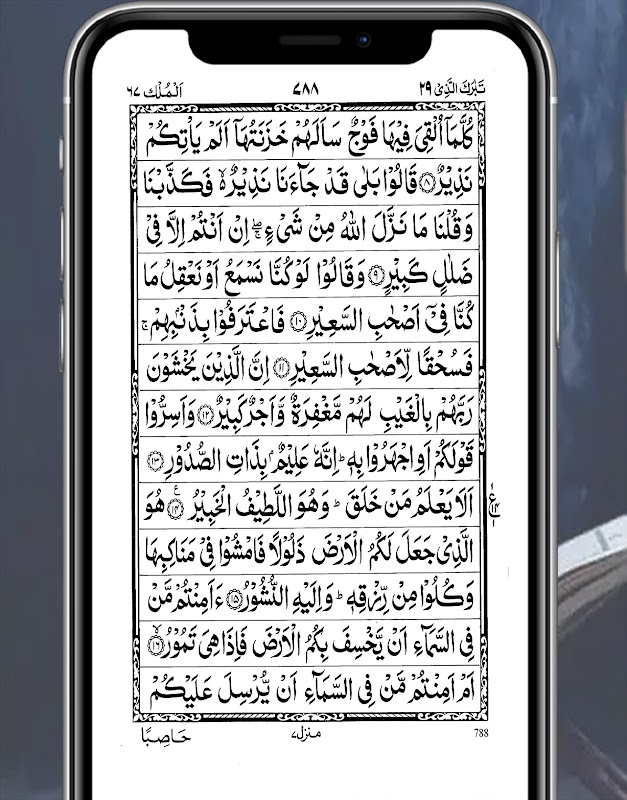 تَبٰرَكَ الَّذِیْ ۲۹ ۷۸۸ اَلْمُلْك ۶۷
كُلَّمَاۤ اُلْقِیَ فِیْهَا فَوْجٌ سَاَلَهُمْ خَزَنَتُهَاۤ اَلَمْ یَاْتِكُمْ
نَذِیْرٌ ۝۸ قَالُوْا بَلٰی قَدْ جَآءَنَا نَذِیْرٌ ۙ فَكَذَّبْنَا
وَ قُلْنَا مَا نَزَّلَ اللّٰهُ مِنْ شَیْءٍ ۚۖ اِنْ اَنْتُمْ اِلَّا فِیْ
ضَلٰلٍ كَبِیْرٍ ۝۹ وَ قَالُوْا لَوْ كُنَّا نَسْمَعُ اَوْ نَعْقِلُ مَا
كُنَّا فِیْۤ اَصْحٰبِ السَّعِیْرِ ۝۱۰ فَاعْتَرَفُوْا بِذَنْۢبِهِمْ ۚ
فَسُحْقًا لِّاَصْحٰبِ السَّعِیْرِ ۝۱۱ اِنَّ الَّذِیْنَ یَخْشَوْنَ
رَبَّهُمْ بِالْغَیْبِ لَهُمْ مَّغْفِرَةٌ وَّ اَجْرٌ كَبِیْرٌ ۝۱۲ وَ اَسِرُّوْا
قَوْلَكُمْ اَوِ اجْهَرُوْا بِهٖ ؕ اِنَّهٗ عَلِیْمٌۢ بِذَاتِ الصُّدُوْرِ ۝۱۳
اَلَا یَعْلَمُ مَنْ خَلَقَ ؕ وَ هُوَ اللَّطِیْفُ الْخَبِیْرُ ۝۱۴ هُوَ
الَّذِیْ جَعَلَ لَكُمُ الْاَرْضَ ذَلُوْلًا فَامْشُوْا فِیْ مَنَاكِبِهَا
وَ كُلُوْا مِنْ رِّزْقِهٖ ؕ وَ اِلَیْهِ النُّشُوْرُ ۝۱۵ ءَاَمِنْتُمْ مَّنْ
فِی السَّمَآءِ اَنْ یَّخْسِفَ بِكُمُ الْاَرْضَ فَاِذَا هِیَ تَمُوْرُ ۝۱۶
اَمْ اَمِنْتُمْ مَّنْ فِی السَّمَآءِ اَنْ یُّرْسِلَ عَلَیْكُمْ
788 منزل۷ حَاصِبًا